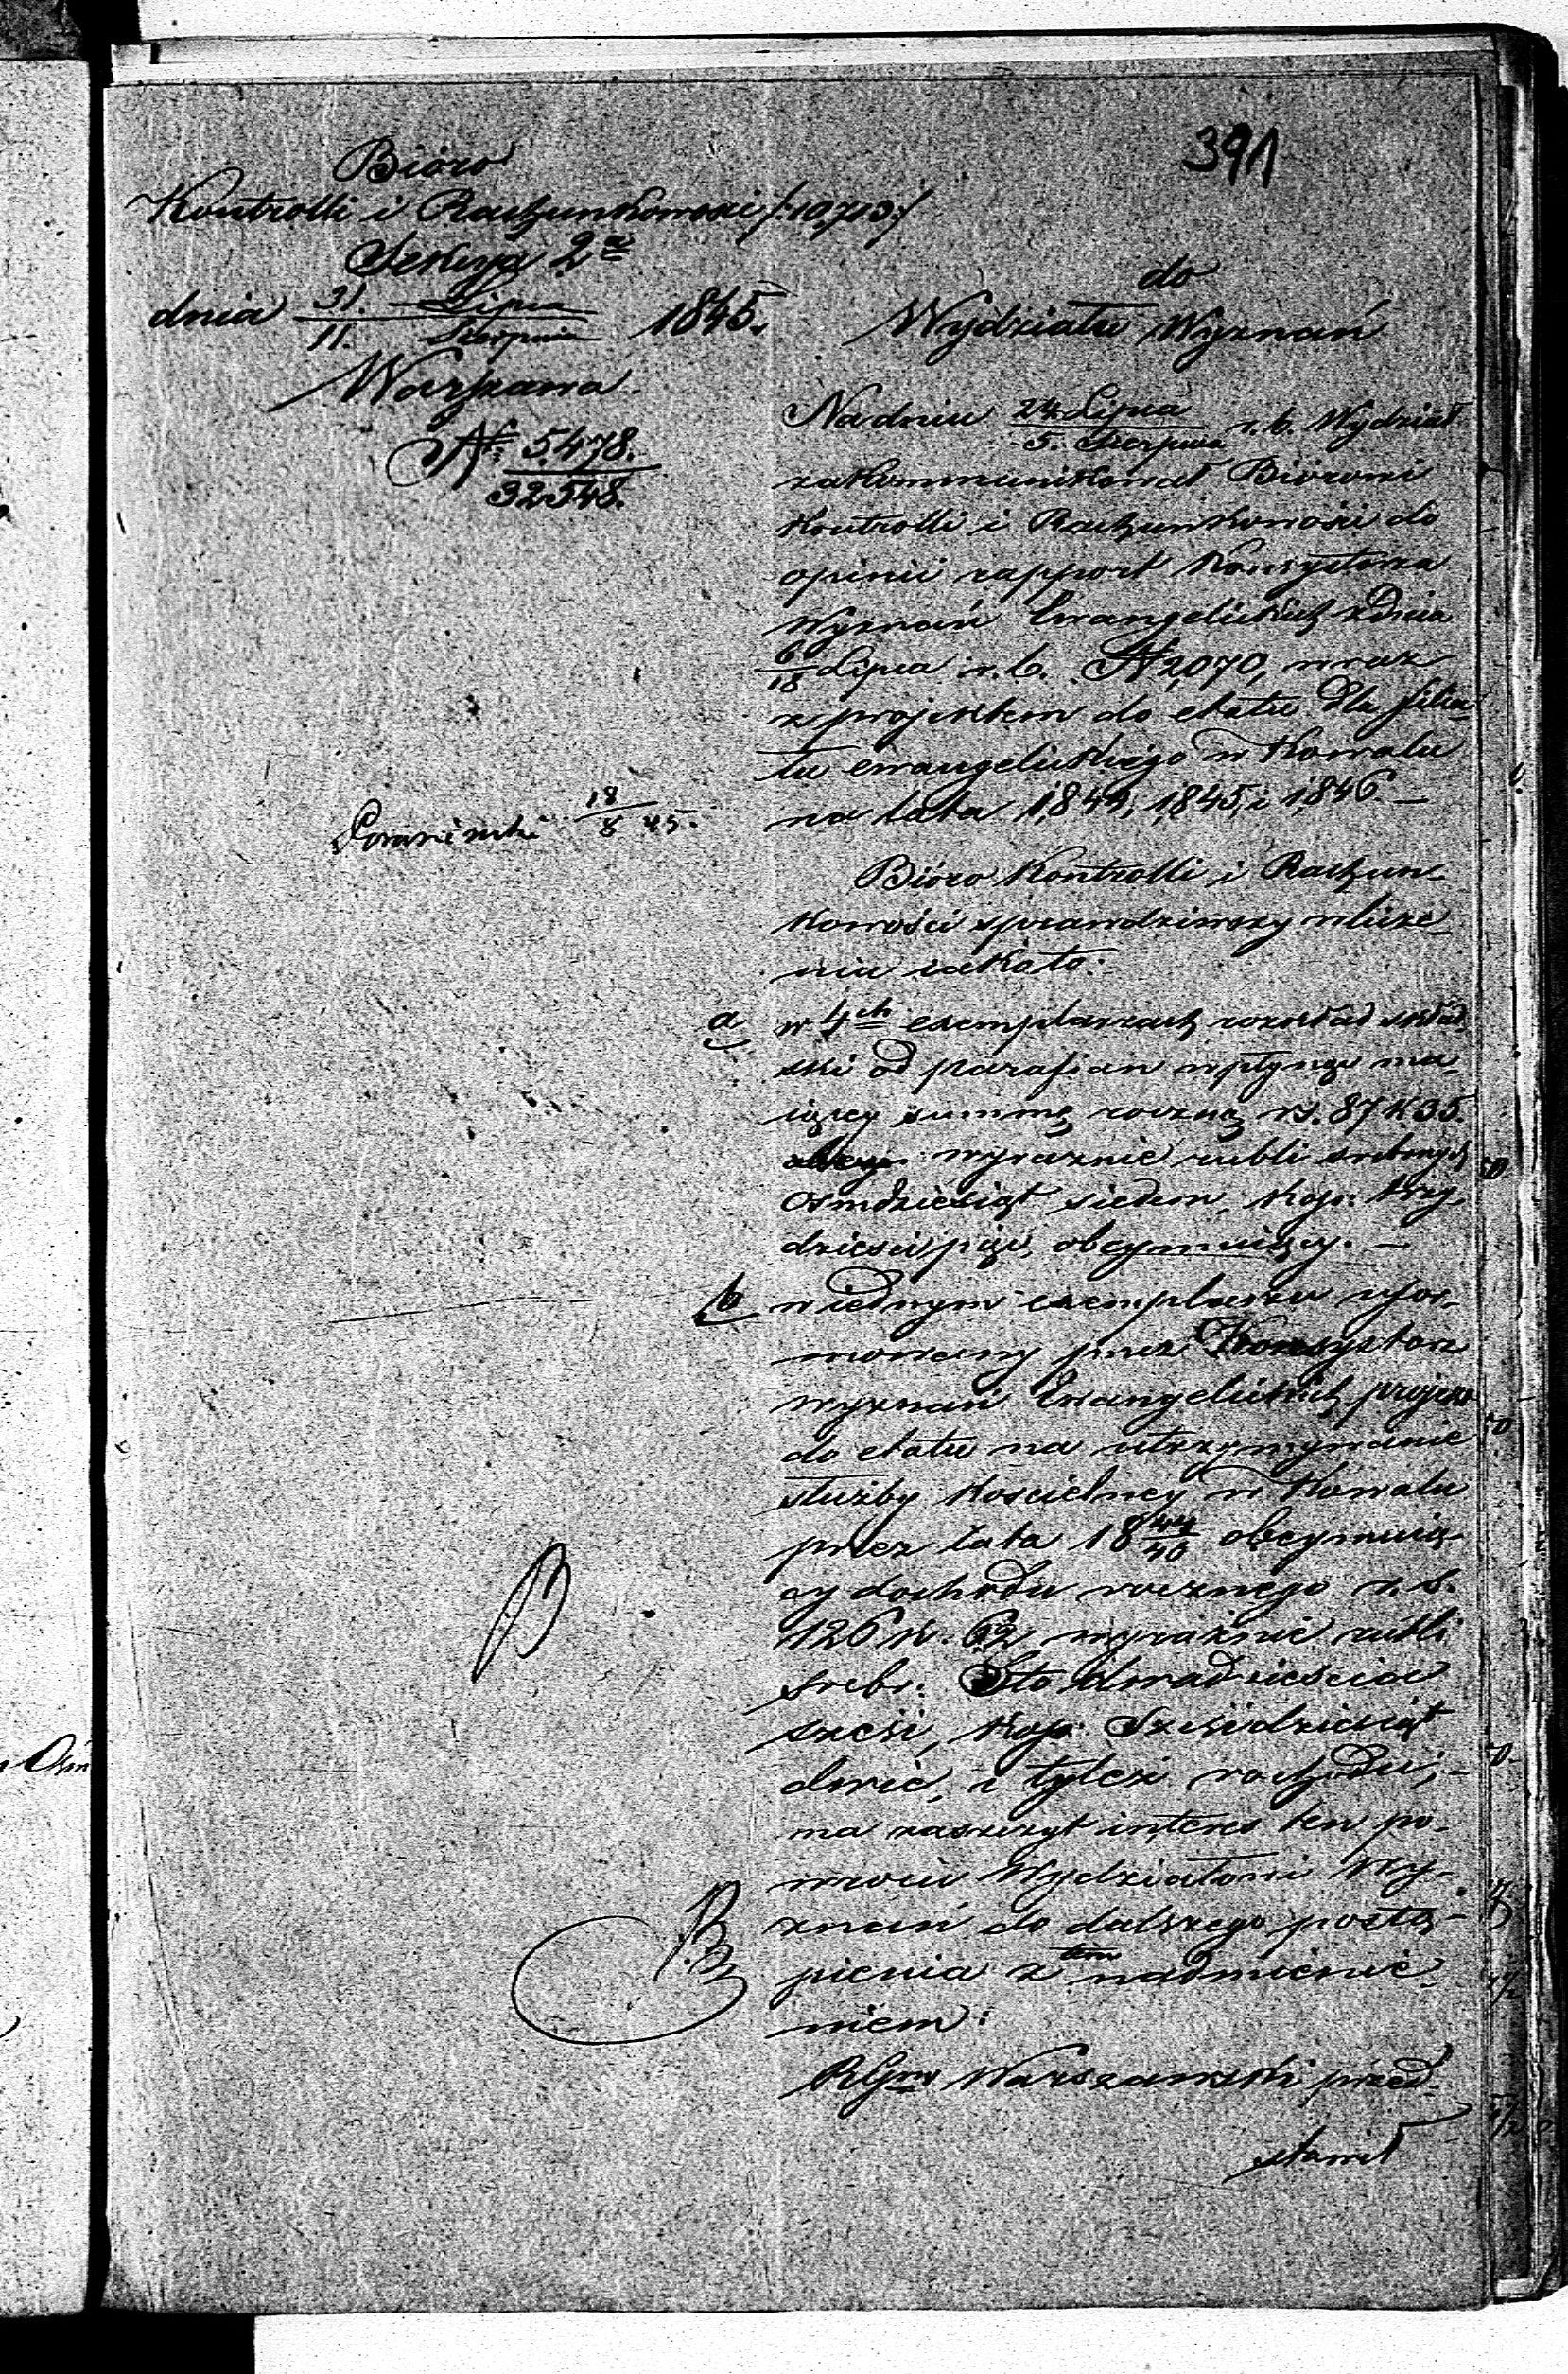 391
Bióro
Kontrolli i Rachunkowości /:10713:/
Sekcya 2a
dnia 31. Lipca / 11. Sierpnia 1845.
Warszawa
N: 5,478. / 32548.
do
Wydziału Wyznań
Na dniu 24 Lipca / 5. Sierpnia r. b. Wydział
zakommunikował Biórowi
Kontrolli i Rachunkowości do
opinii rapport Konsystorza
Wyznań Ewangelickich z dnia
6/18 Lipca r. b. N 2,070, wraz
z projektem do etatu dla filia-
łu ewangelickiego w Kowalu
na lata 1844, 1845, i 1846. —
18/8 45.
Bióro Kontrolli i Rachun-
kowości sprawdziwszy w licze-
niu iakoto:
a w 4ch exemplarzach rozkład skład-
ski od parafian wpłynąć ma-
iącey summę roczną rs. 87 k 35.
wyraźnie rubli srebnych
osmdziesiąt siedem, kop: trzy-
dzieści pięć, obeymuiący. —
b w iednym exemplarzu ufor-
mowany przez Konsystorz
wyznań Ewangelickich projekt
do etatu na utrzymywanie
służby kościelney w Kowalu
przez lata 1844/46 obeymuią-
cy dochodu rocznego r. s.
126 k. 62 wyraźnie rubli
srebr: Sto dwadzieścia
sześć, kop: Sześćdziesiąt
dwie, i tyleż rozchodu, —
ma zaszczyt interes ten po-
wrócić Wydziałowi Wy-
znań do dalszego postą-
pienia z tem nadmienie-
niem:
RGny Warszawski przed-
stawił